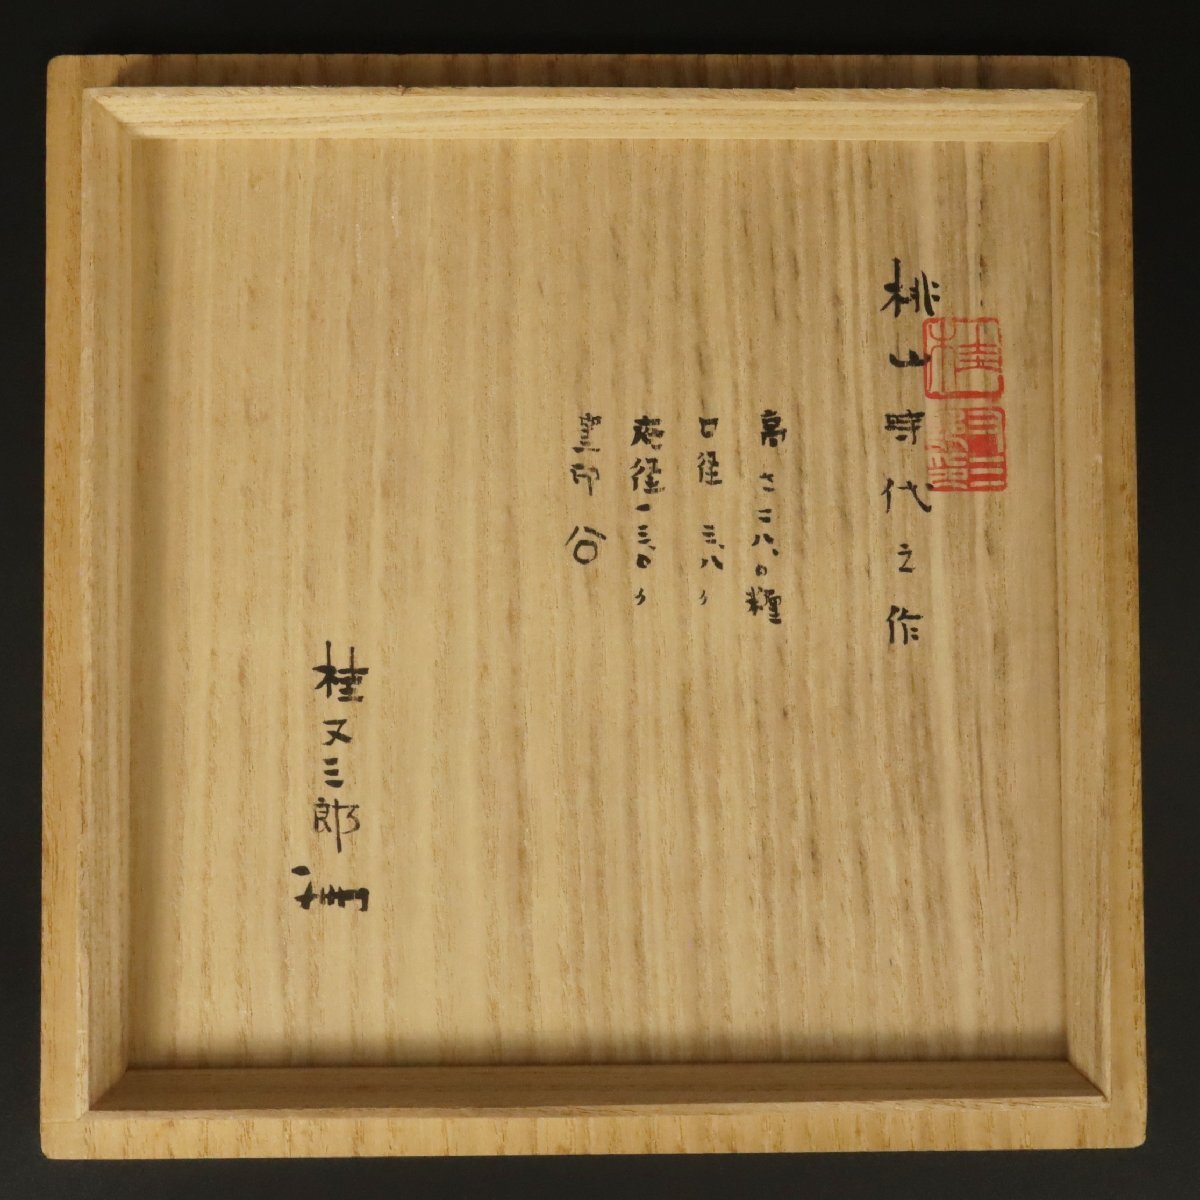 桃山時代之作
高さ二八、〇糎
口径 三、八〃
底径一三、〇〃
窯印
桂又三郎
桂